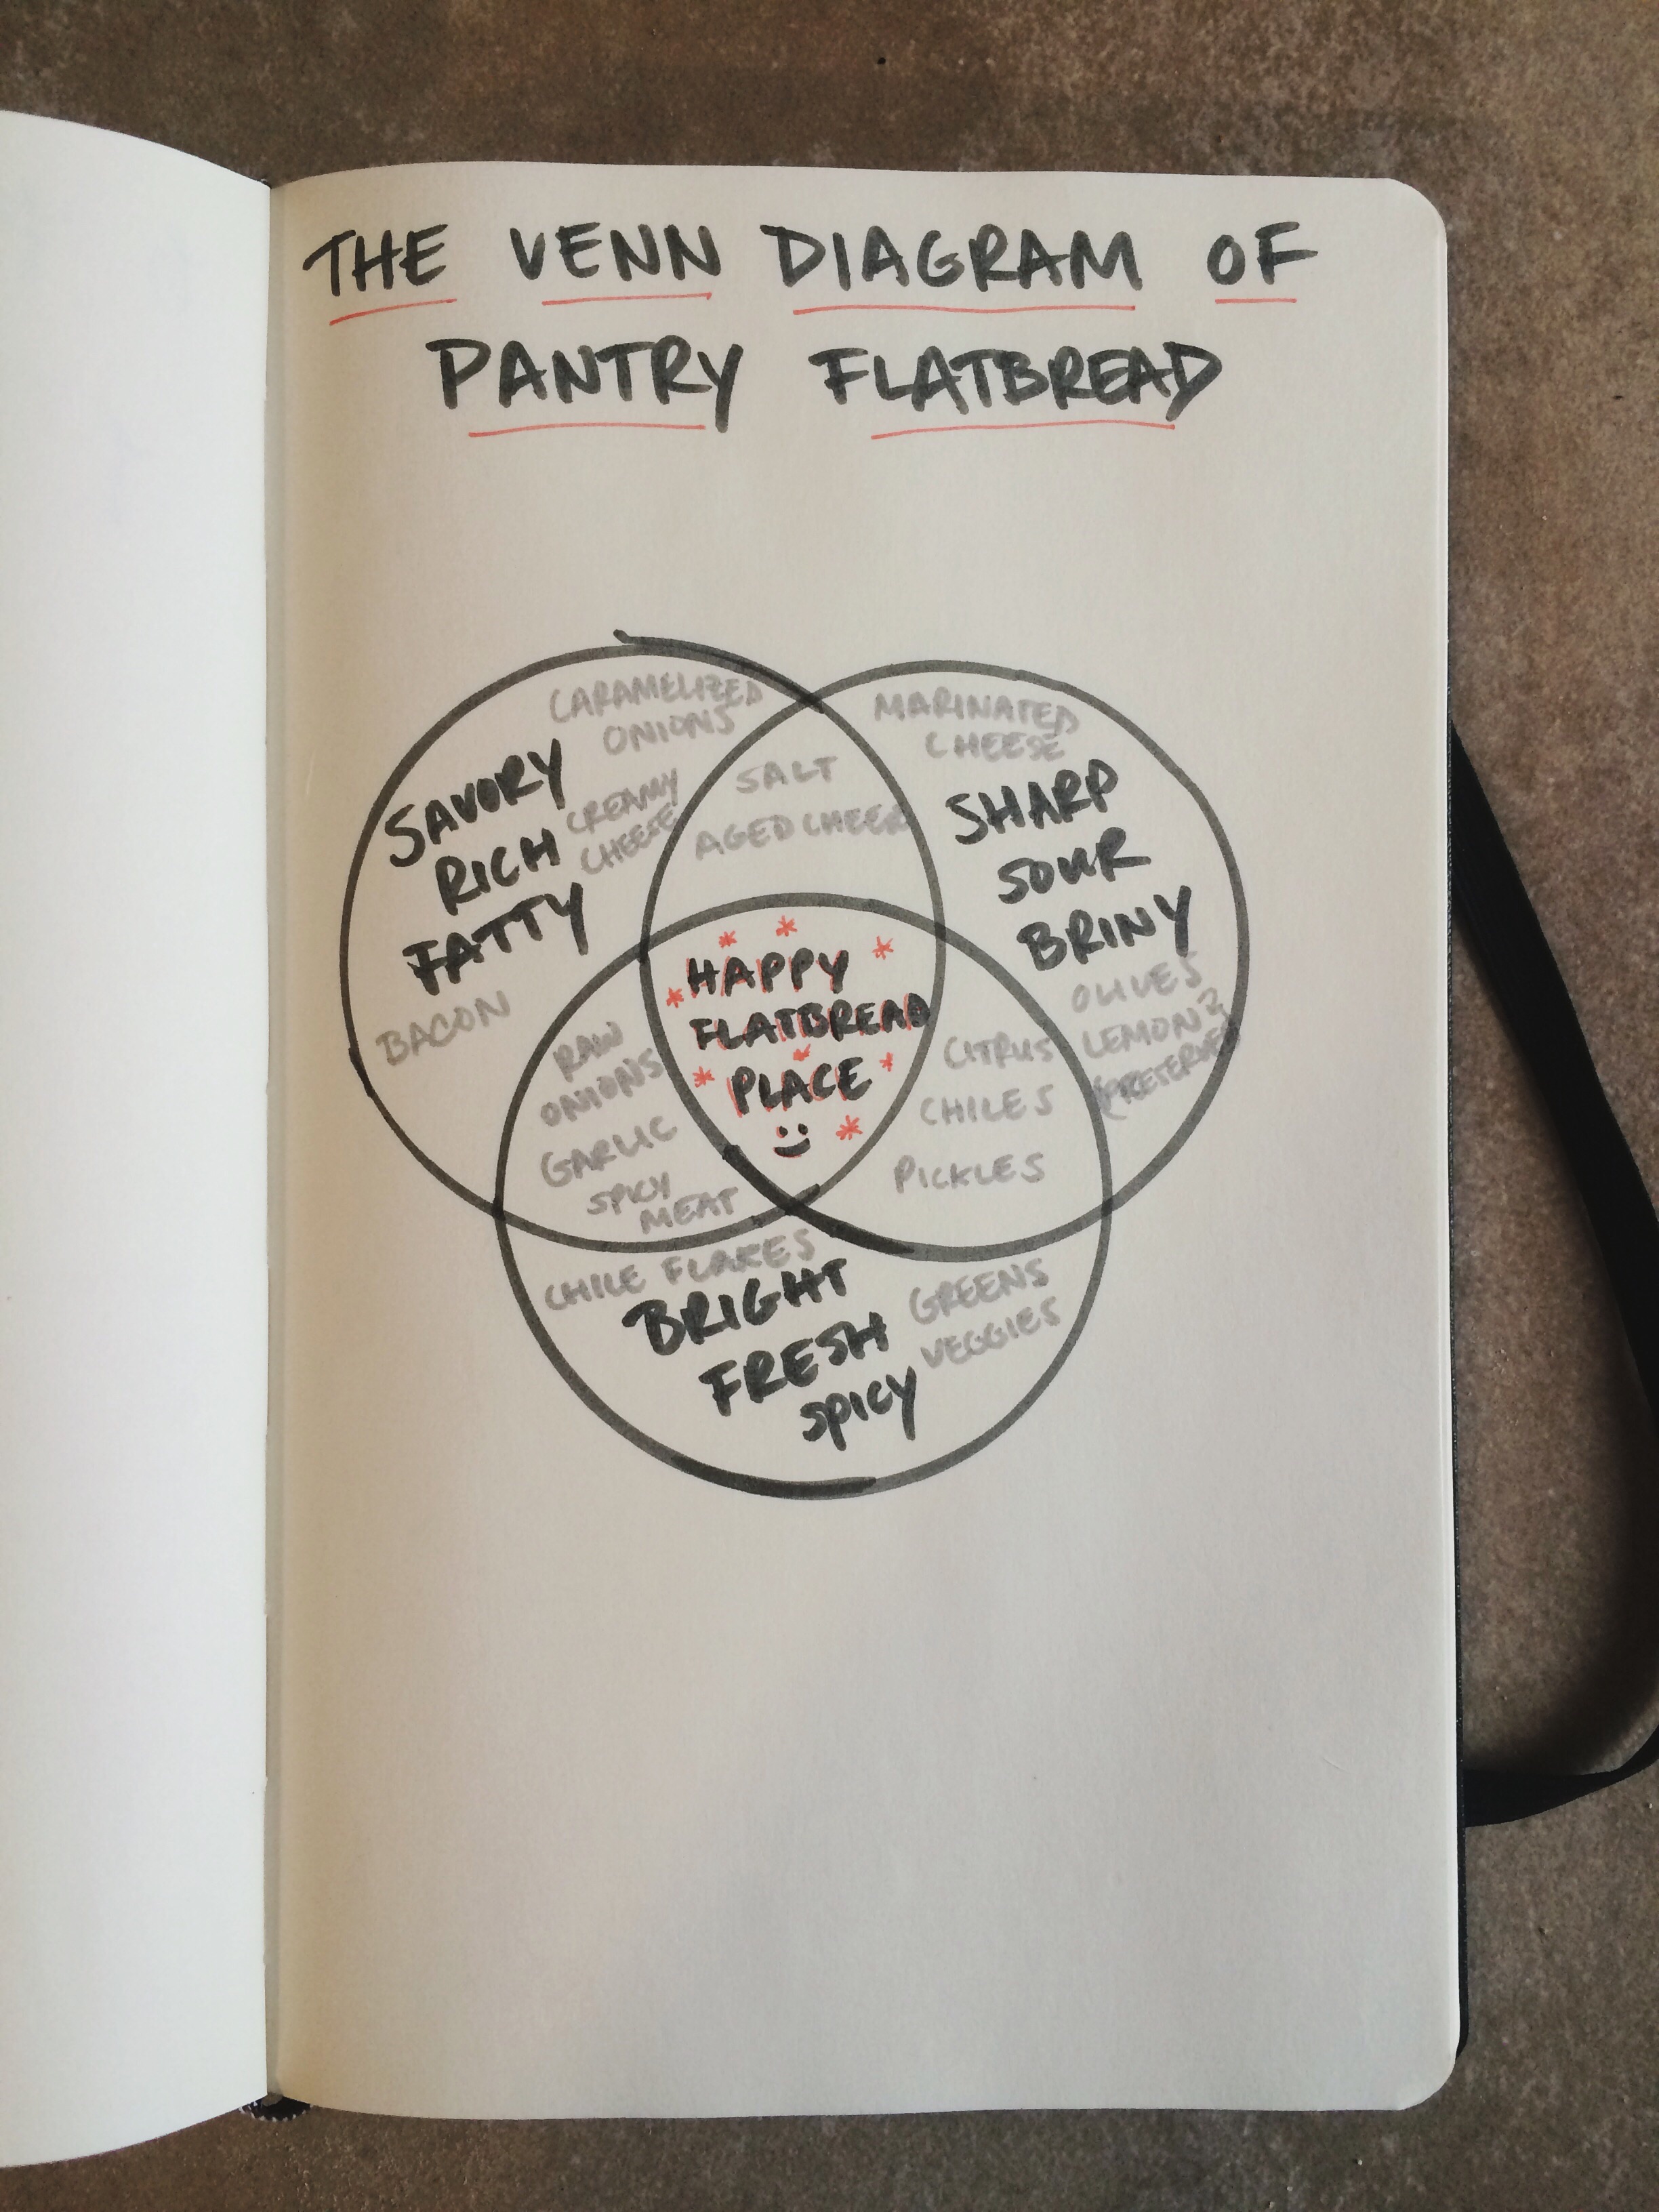 THE VENN DIAGRAM OF
PANTRY FLATBREAD
CARAMELIZED
ONIONS
SAVORY
RICH
FATTY
CREAMY
CHEESE
BACON
SALT
AGED CHEESE
MARINATED
CHEESE
SHARP
SOUR
BRINY
OLIVES
LEMON?
(PRESERVED
HAPPY
FLATBREAD
PLACE
RAW
ONIONS
GARLIC
SPICY
MEAT
CITRUS
CHILES
PICKLES
CHILE FLAKES
BRIGHT
FRESH
SPICY
GREENS
VEGGIES